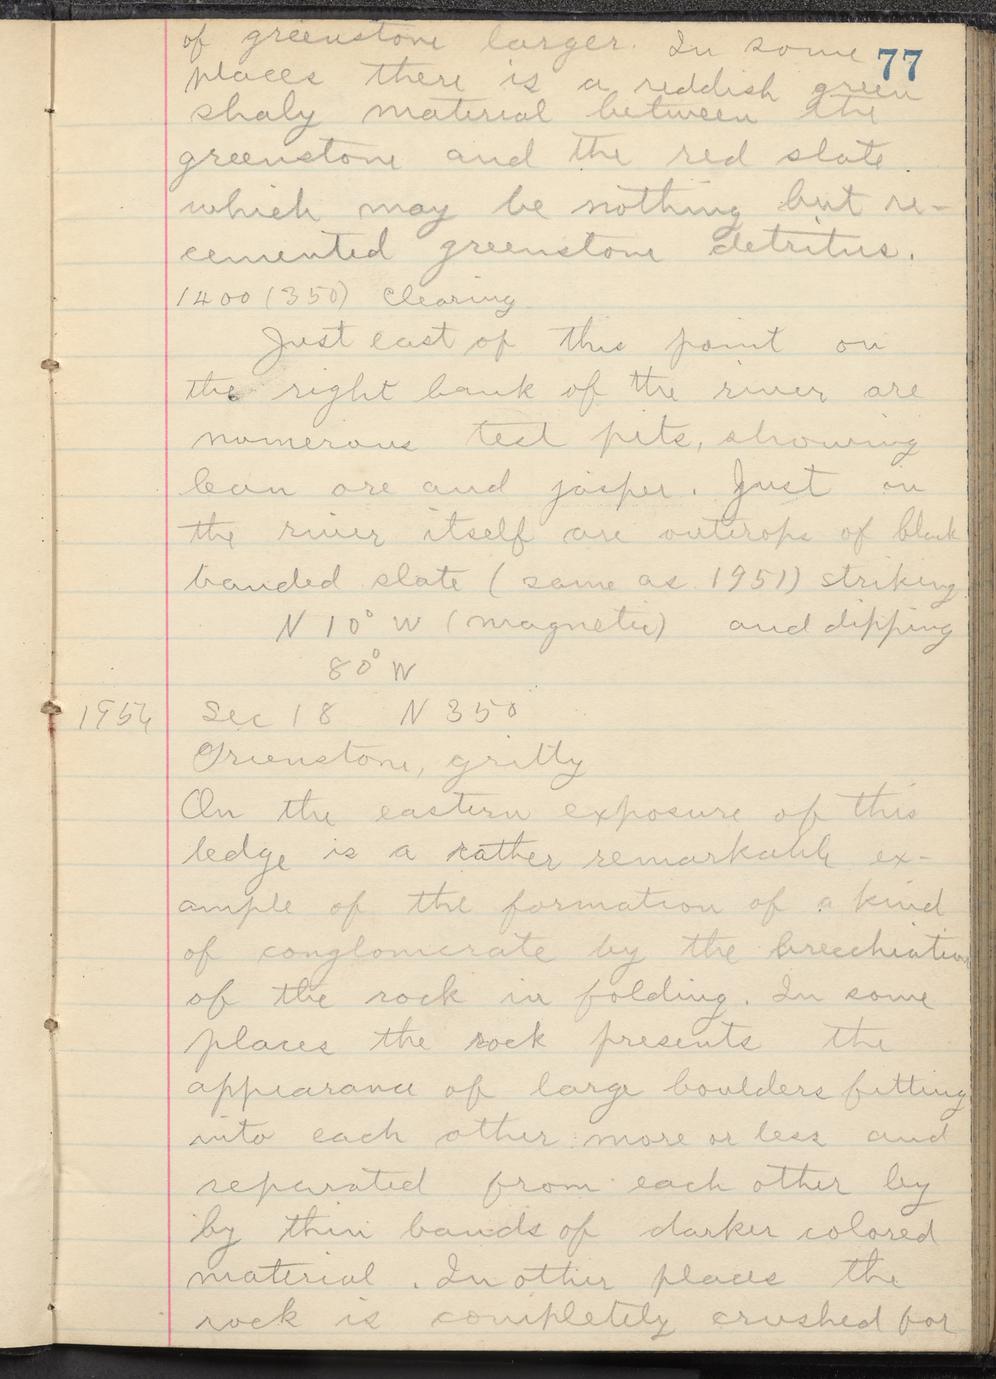 77
of greenstone larger. In some
places there is a reddish green
shaly material between the
greenstone and the red slate
which may be nothing but re-
cemented greenstone detritus.
1400 (350) Clearing
Just east of this point on
the right bank of the river are
numerous test pits, showing
lean ore and jasper. Just in
the river itself are outcrops of black
banded slate (same as 1951) striking
N 10° W (magnetic) and dipping
80° W
1954 Sec 18 N 350
Greenstone, gritty
On the eastern exposure of this
ledge is a rather remarkable ex-
ample of the formation of a kind
of conglomerate by the brecchiation
of the rock in folding. In some
places the rock presents the
appearance of large boulders fitting
into each other more or less and
separated from each other by
by thin bands of darker colored
material. In other places the
rock is completely crushed for